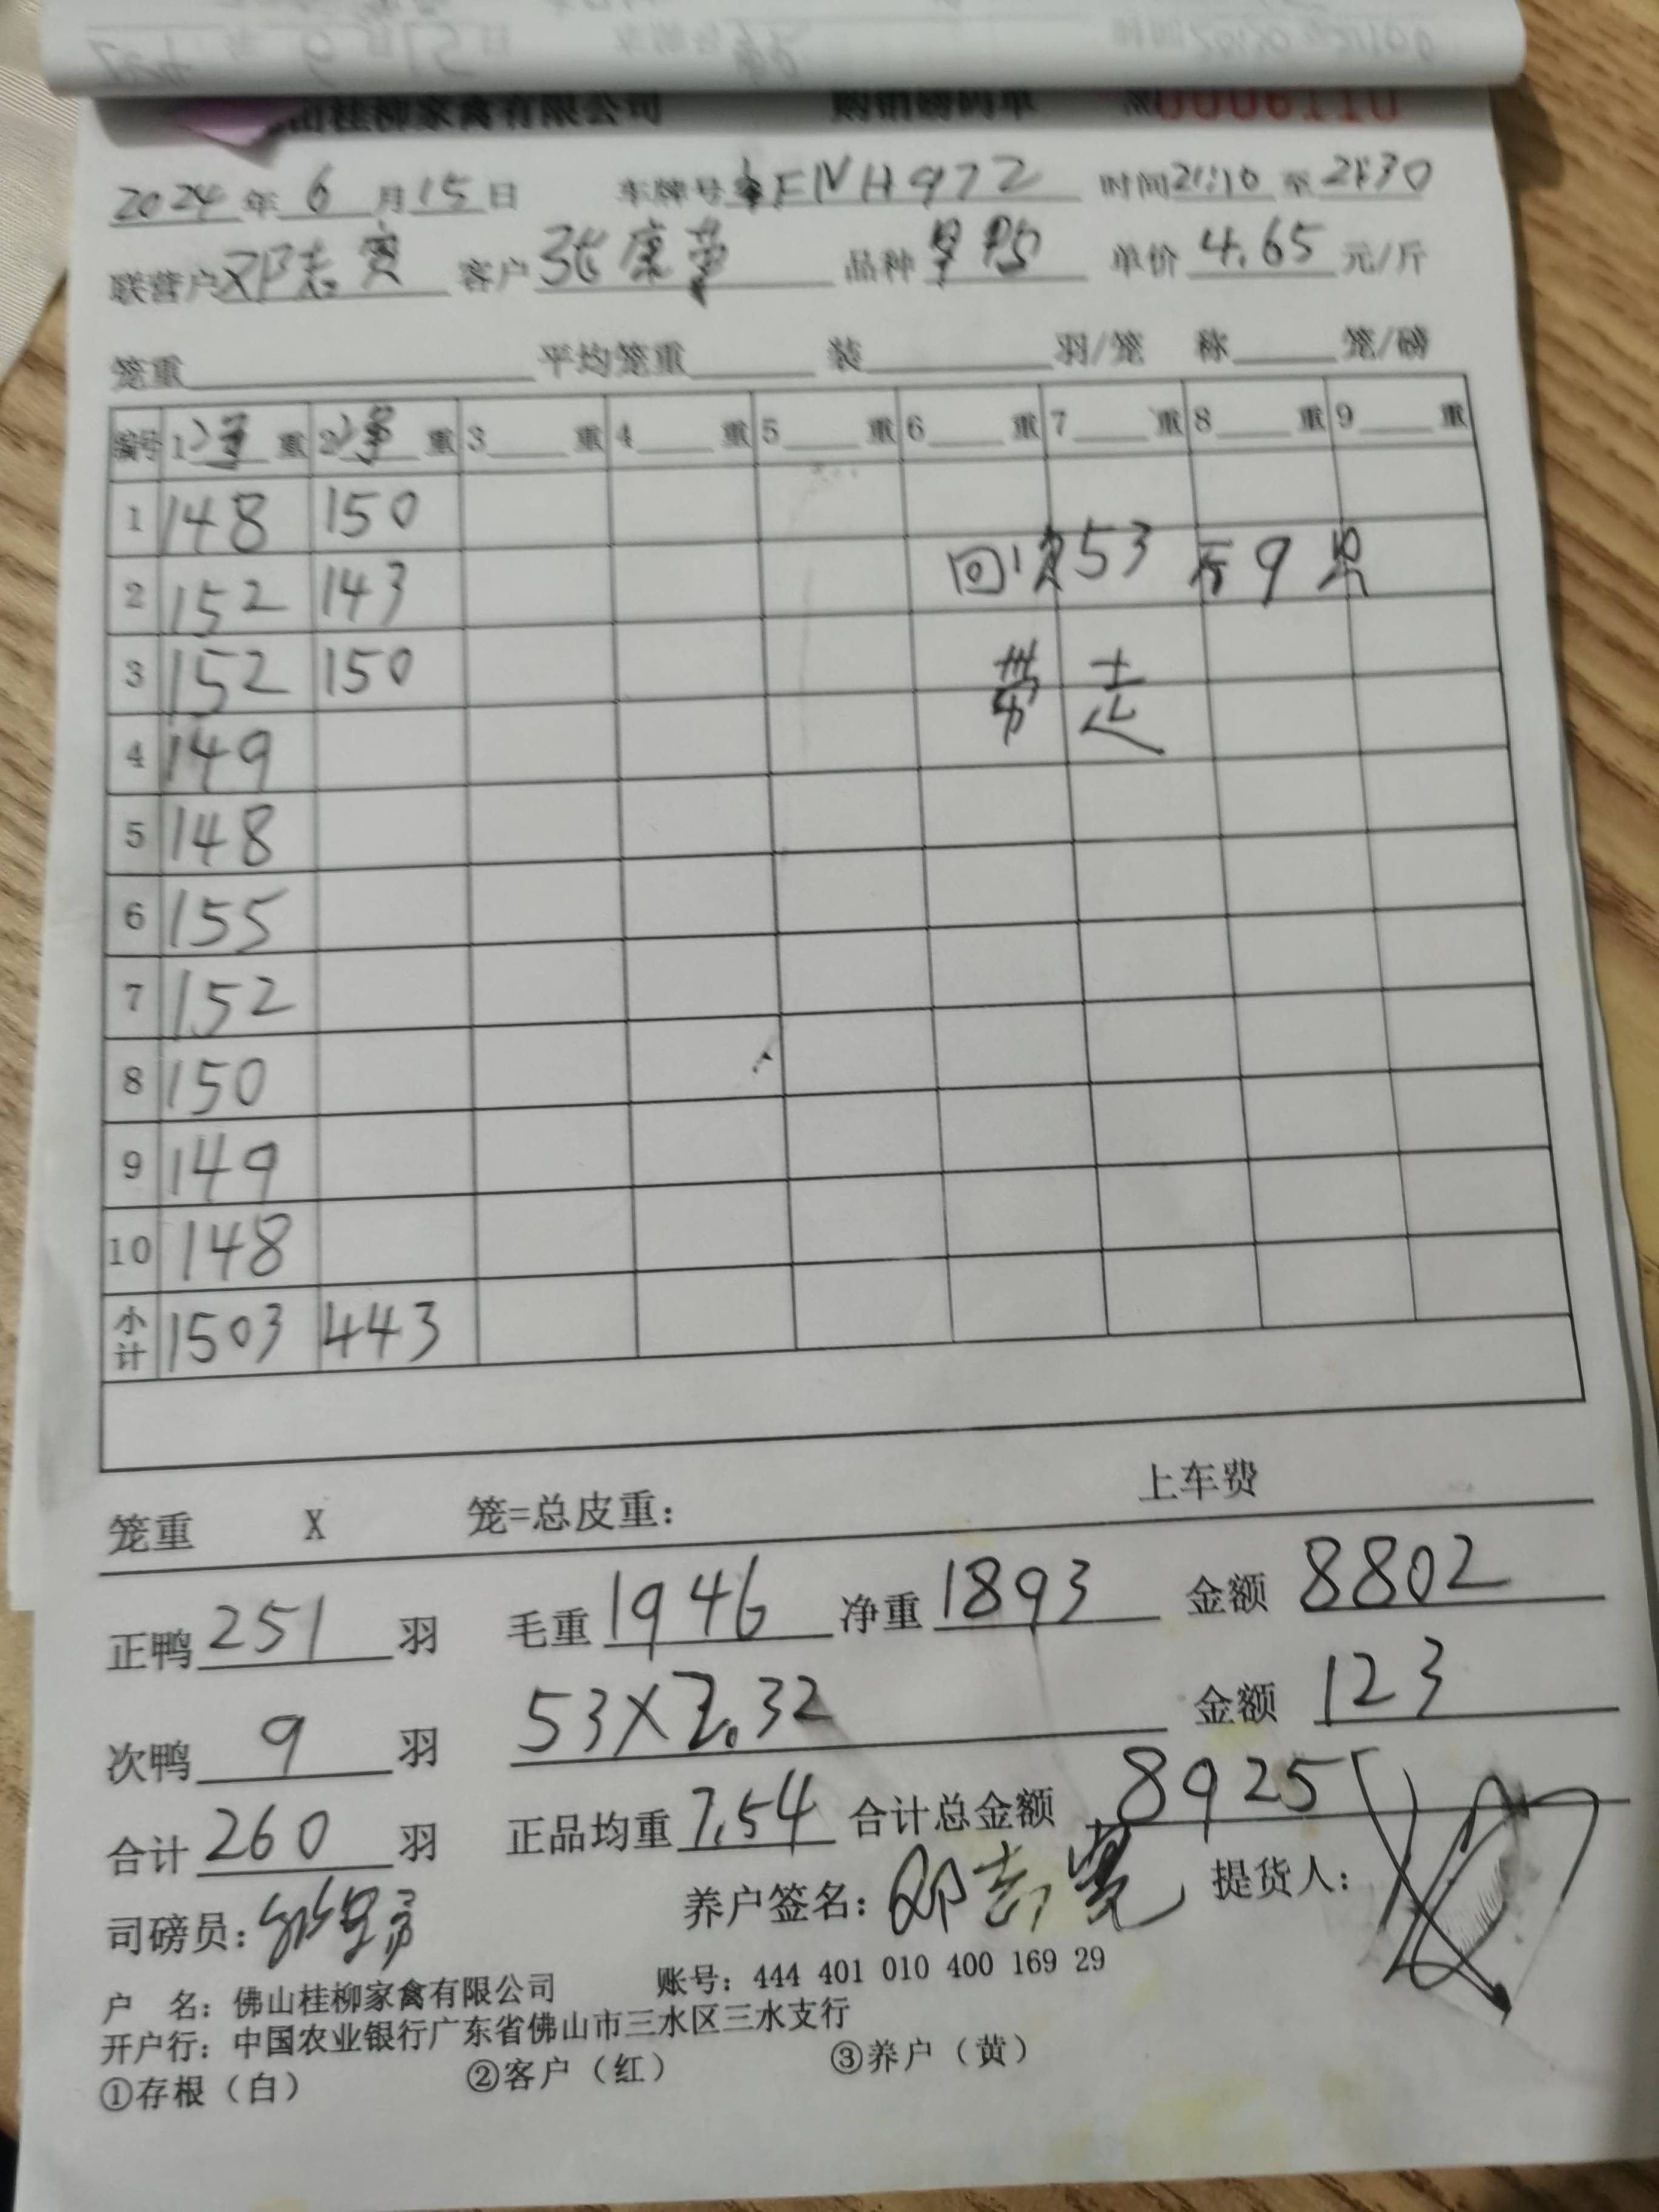 山桂柳家禽有限公司 购销磅码单 №0006110
2024年6月15日 车牌号 FNH972 时间21:10至21:30
联营户邓志宽 客户张康华 品种旱鸭 单价4.65元/斤
笼重 平均笼重 装 羽/笼 称 笼/磅
编号 1净重 2净重 3 重 4 重 5 重 6 重 7 重 8 重 9 重
1 148 150
回1次53斤9只
2 152 143
3 152 150
带走
4 149
5 148
6 155
7 152
8 150
9 149
10 148
小计 1503 443
笼重 X 笼=总皮重: 上车费
正鸭251羽 毛重1946 净重1893 金额8802
次鸭9羽 53×2.32 金额123
合计260羽 正品均重7.54 合计总金额8925
司磅员: 养户签名:邓志宽 提货人:
户 名: 佛山桂柳家禽有限公司 账号: 444 401 010 400 169 29
开户行: 中国农业银行广东省佛山市三水区三水支行
①存根(白) ②客户(红) ③养户(黄)